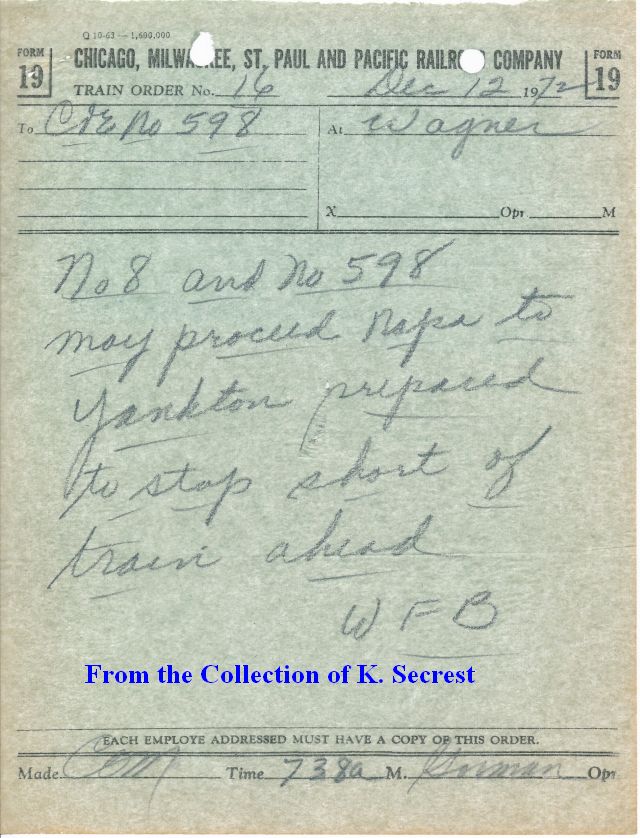 Q 10-63 — 1,600,000
FORM 19
CHICAGO, MILWAUKEE, ST. PAUL AND PACIFIC RAILROAD COMPANY
FORM 19
TRAIN ORDER No. 16 Dec 12 1972
To C&E No 598 At Wagner
X Opr M
No 8 and No 598
may proceed Napa to
Yankton prepared
to stop short of
train ahead
W F B
From the Collection of K. Secrest
EACH EMPLOYE ADDRESSED MUST HAVE A COPY OF THIS ORDER.
Made Com Time 738a M. Gorman Opr